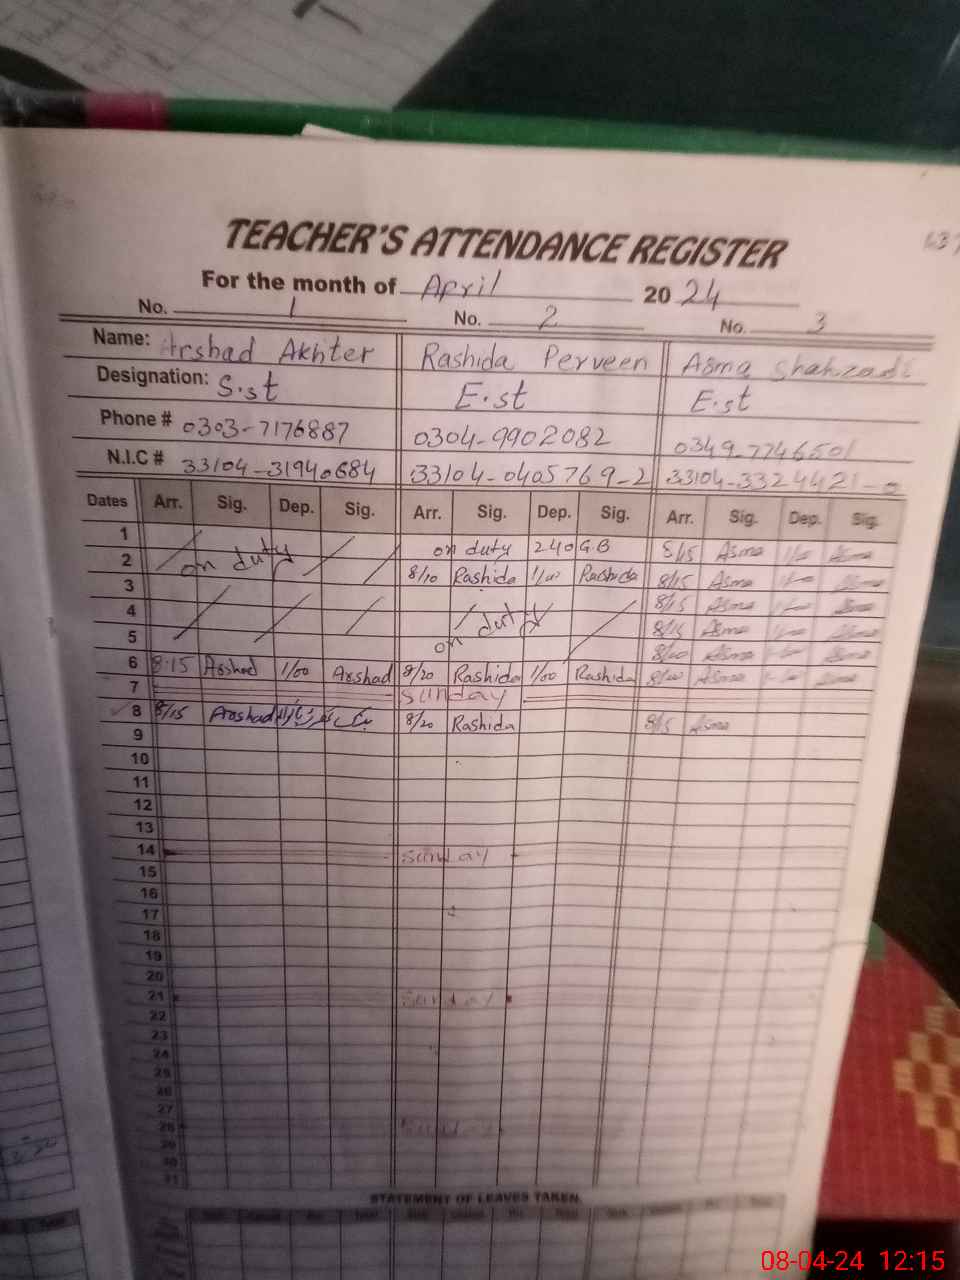 TEACHER'S ATTENDANCE REGISTER
For the month of April 2024
No. 1 No. 2 No. 3
Name: Arshad Akhter Rashida Perveen Asma Shahzadi
Designation: S.st E.st E.st
Phone # 0303-7176887 0304-9902082 0349-7746501
N.I.C # 33104-31940684 33104-0405769-2 33104-3324421-0
Dates Arr. Sig. Dep. Sig. Arr. Sig. Dep. Sig. Arr. Sig. Dep. Sig.
1 on duty 240 G.B 8/15 Asma 1/00 Asma
2 on duty 8/10 Rashida 1/00 Rashida 8/15 Asma 1/00 Asma
3 8/15 Asma 1/00 Asma
4 on duty 8/15 Asma 1/00 Asma
5 8/20 Asma 1/00 Asma
6 8:15 Arshad 1/00 Arshad 8/20 Rashida 1/00 Rashida 8/20 Asma 1/00 Asma
7 Sunday
8 8/15 Arshad 8/20 Rashida 8/15 Asma
9
10
11
12
13
14 Sunday
15
16
17
18
19
20
21 Sunday
22
23
24
25
26
27
28 Sunday
29
30
31
STATEMENT OF LEAVES TAKEN
08-04-24 12:15